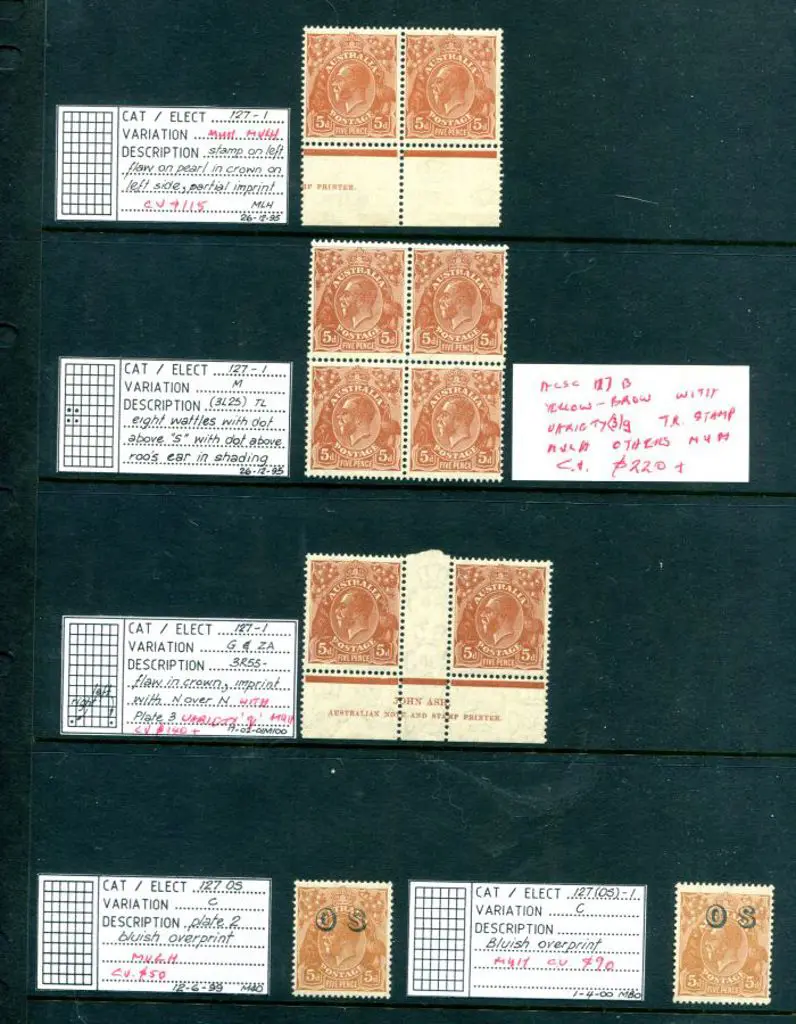 AUSTRALIA AUSTRALIA
POSTAGE POSTAGE
5d 5d 5d 5d
FIVE PENCE FIVE PENCE
MP PRINTER.
CAT / ELECT 127-1
VARIATION MUH MVLH
DESCRIPTION stamp on left
flaw on pearl in crown on
left side, partial imprint
CV $115 MLH
26-12-95
AUSTRALIA AUSTRALIA
POSTAGE POSTAGE
5d 5d 5d 5d
FIVE PENCE FIVE PENCE
AUSTRALIA AUSTRALIA
POSTAGE POSTAGE
5d 5d 5d 5d
FIVE PENCE FIVE PENCE
CAT / ELECT 127-1
VARIATION M
DESCRIPTION (3L25) TL
eight wattles with dot
above "5" with dot above
roo's ear in shading
26-12-95
ACSC 127 B
YELLOW-BROW WITH
VARIETY(3)g TR. STAMP
MVLH OTHERS MUH
C.V. $220+
AUSTRALIA AUSTRALIA
POSTAGE POSTAGE
5d 5d 5d 5d
FIVE PENCE FIVE PENCE
JOHN ASH
AUSTRALIAN NOTE AND STAMP PRINTER.
CAT / ELECT 127-1
VARIATION G & ZA
DESCRIPTION 3R55-
flaw in crown, imprint
with N over N WITH
Plate 3 VARIETY 'g' MUH
CV $140+ 17-01-01 M100
left
right
CAT / ELECT 127 OS
VARIATION C
DESCRIPTION plate 2
bluish overprint
MVLH
CV. $50
12-6-99 M80
O S
POSTAGE
5d 5d
FIVE PENCE
CAT / ELECT 127(OS)-1
VARIATION C
DESCRIPTION
Bluish overprint
MUH CV $90
1-4-00 M80
O S
POSTAGE
5d 5d
FIVE PENCE